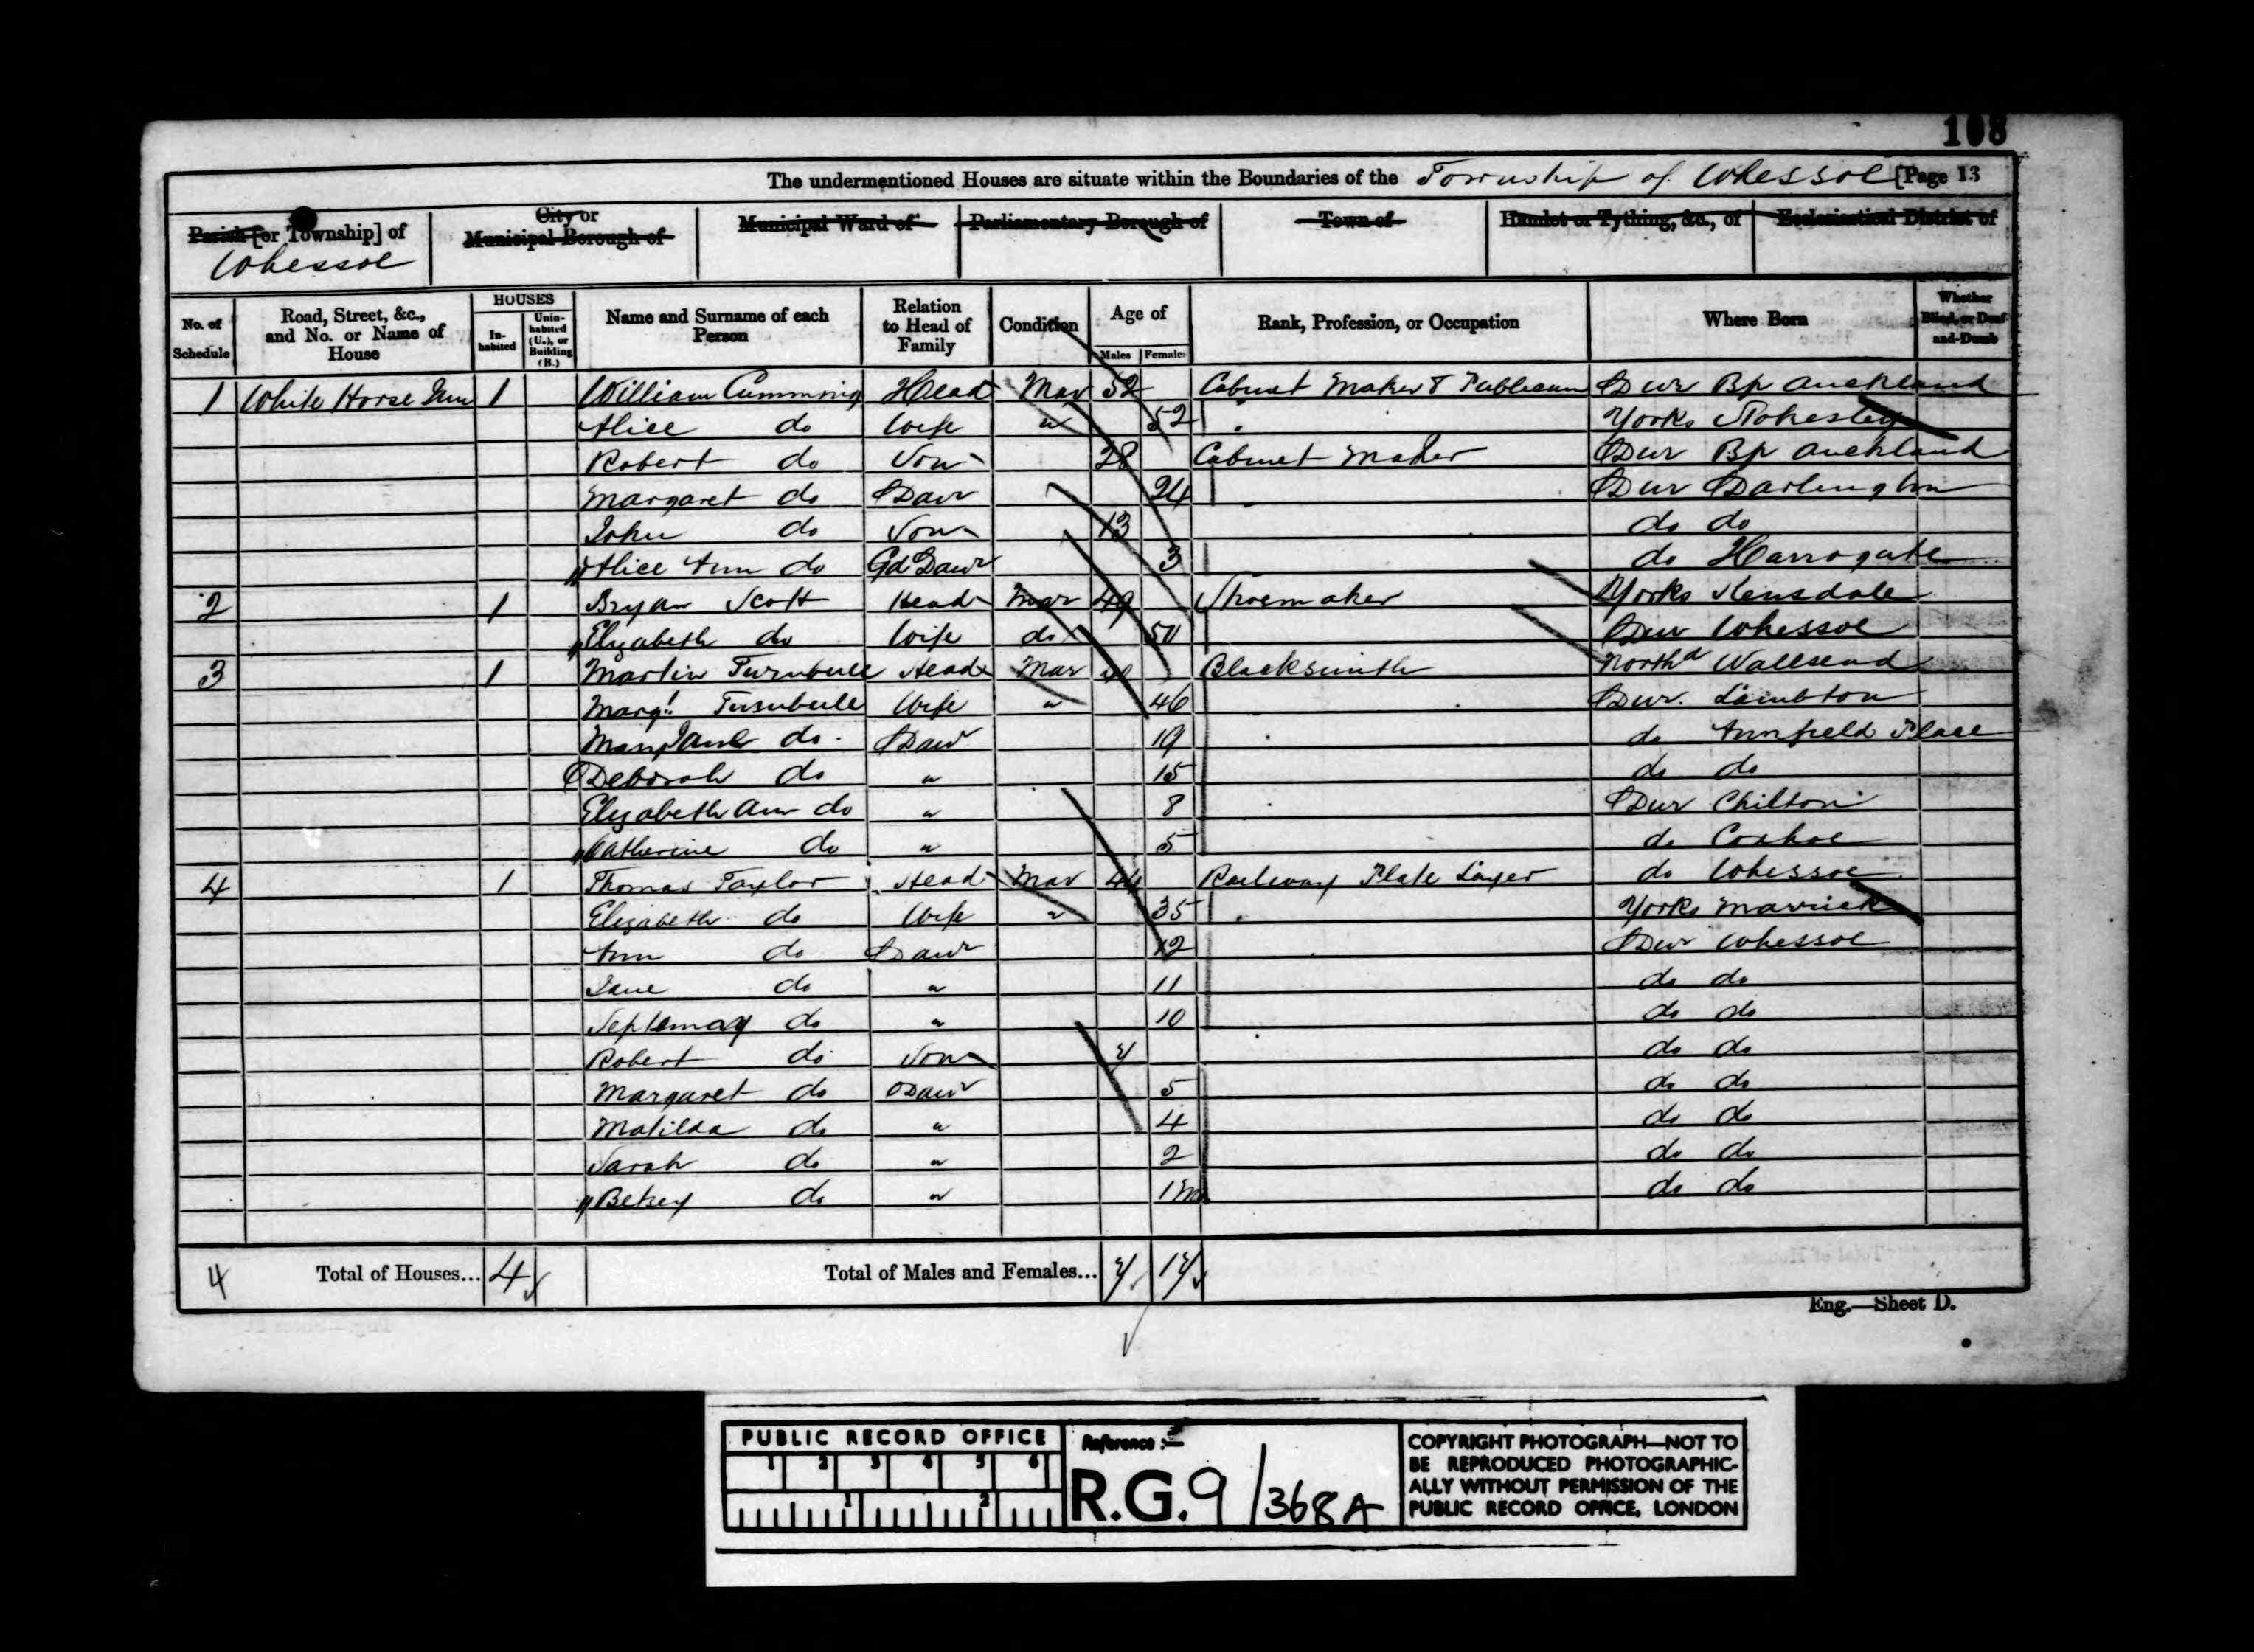 108
The undermentioned Houses are situate within the Boundaries of the Township of Whessoe [Page 13
Parish [or Township] of
Whessoe
City or
Municipal Borough of
Municipal Ward of
Parliamentary Borough of
Town of
Hamlet or Tything, &c., of
Ecclesiastical District of
No. of Schedule
Road, Street, &c., and No. or Name of House
HOUSES
In-habited
Unin-habited (U.), or Building (B.)
Name and Surname of each Person
Relation to Head of Family
Condition
Age of
Males
Females
Rank, Profession, or Occupation
Where Born
Whether Blind, or Deaf-and-Dumb
1 White Horse Inn 1 William Cumming Head Mar 52 Cabinet Maker & Publican Dur Bp Auckland
Alice do Wife " 52 Yorks Stokesley
Robert do Son 28 Cabinet Maker Dur Bp Auckland
Margaret do Daur 24 Dur Darlington
John do Son 13 do do
Alice Ann do Gd Daur 3 do Harrogate
2 1 Bryan Scott Head Mar 49 Shoemaker Yorks
Elizabeth do Wife do 50 Dur Whessoe
3 1 Martin Turnbull Head Mar Blacksmith Northd Wallsend
Margt Turnbull Wife " 46 Dur. Lambton
Mary Jane do. Daur 19 do Annfield Place
Deborah do " 15 do do
Elizabeth Ann do " 8 Dur Chilton
Catherine do " 5 do Coxhoe
4 1 Thomas Taylor Head Mar 44 Railway Plate Layer do Whessoe
Elizabeth do Wife " 35 Yorks Marrick
Ann do Daur 12 Dur Whessoe
Jane do " 11 do do
do " 10 do do
Robert do Son 7 do do
Margaret do Daur 5 do do
Matilda do " 4 do do
Sarah do " 2 do do
Betsey do " 1m do do
4 Total of Houses... 4 Total of Males and Females... 7 17
Eng.—Sheet D.
PUBLIC RECORD OFFICE
1 2 3 4 5 6
1 2
Reference :—
R.G. 9/368A
COPYRIGHT PHOTOGRAPH—NOT TO
BE REPRODUCED PHOTOGRAPHIC-
ALLY WITHOUT PERMISSION OF THE
PUBLIC RECORD OFFICE, LONDON